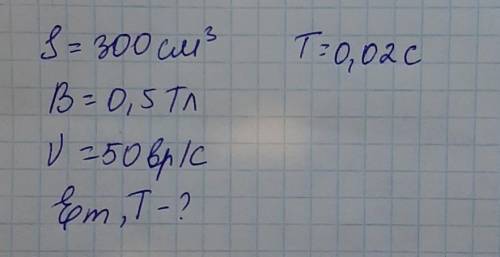 S = 300 см³ T = 0,02 с
B = 0,5 Тл
ν = 50 вр/с
ℰm, T - ?